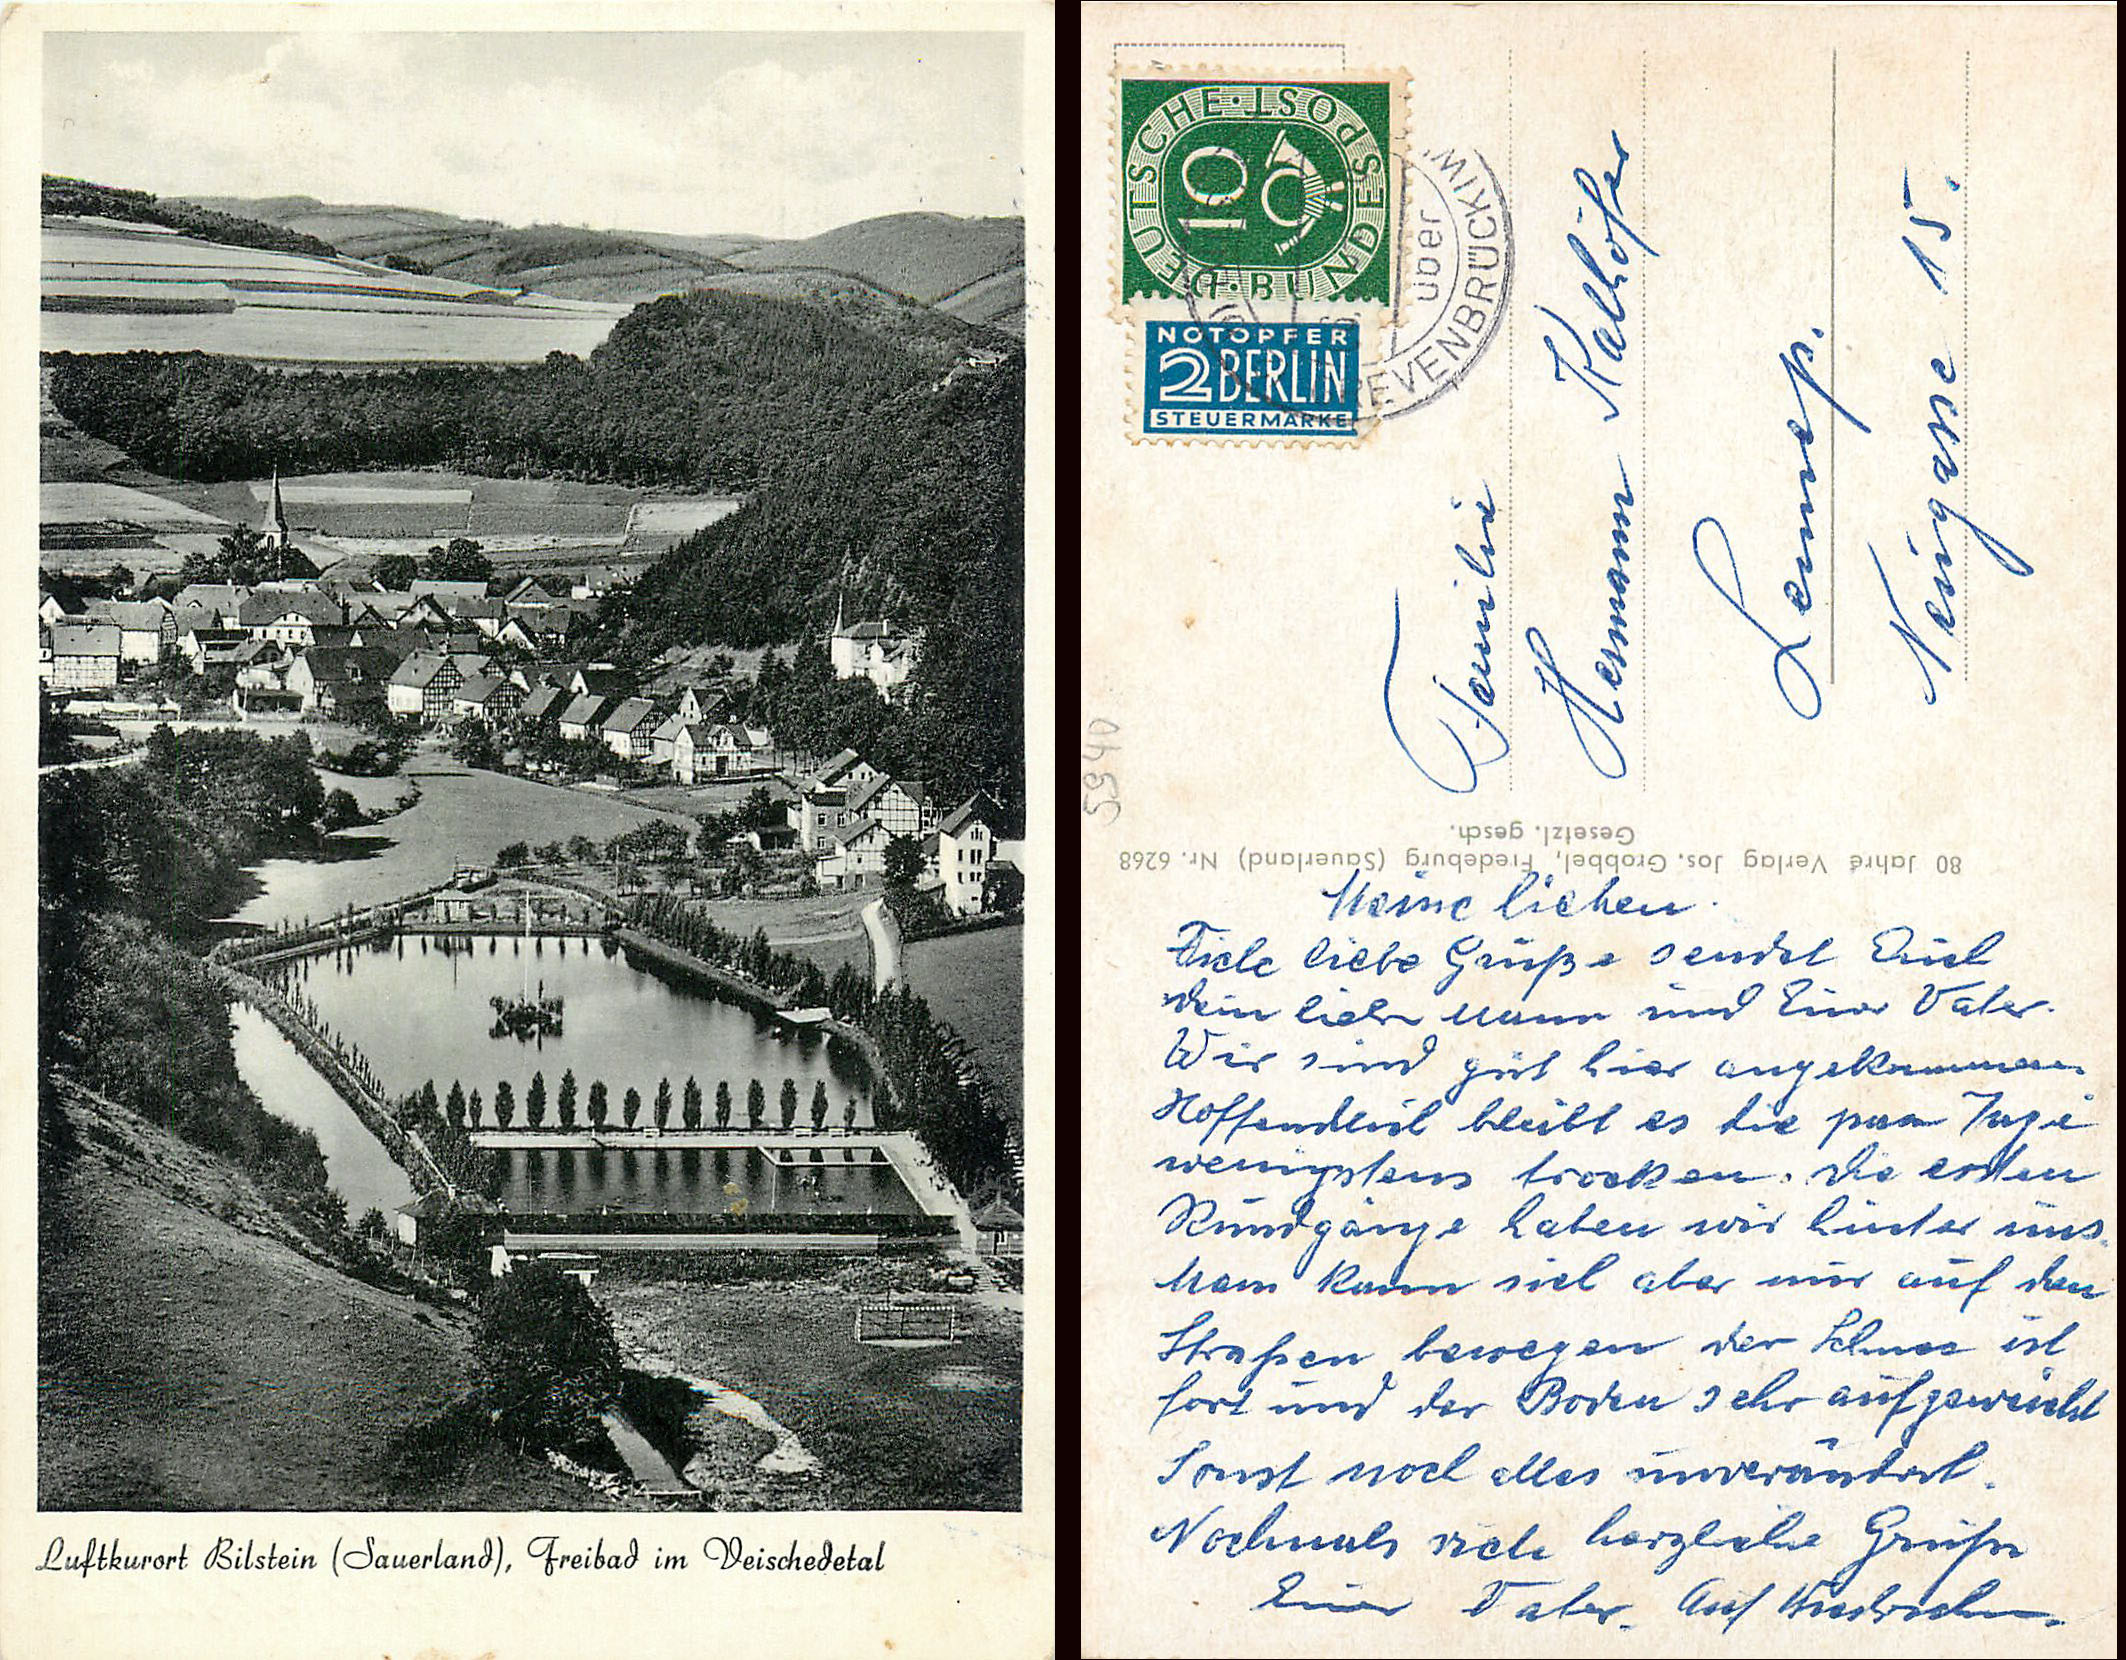 Luftkurort Bilstein (Sauerland), Freibad im Veischedetal
DEUTSCHE · BUNDESPOST
10
NOTOPFER
2 BERLIN
STEUERMARKE
über
GREVENBRÜCK
Familie
Hermann Kalthöfer
Lennep.
Neugasse 15.
5940
80 Jahre Verlag Jos. Grobbel, Fredeburg (Sauerland) Nr. 6268
Gesetzl. gesch.
Meine lieben.
Viele liebe Grüße sendet Euch
Dein lieber Mann und Euer Vater.
Wir sind gut hier angekommen.
Hoffendlich bleibt es die paar Tage
wenigstens trocken. Die ersten
Rundgänge haben wir hinter uns.
Man kann sich aber nur auf den
Straßen bewegen der Schnee ist
fort und der Boden sehr aufgeweicht
Sonst noch alles unverändert.
Nochmals viele herzliche Grüße
Euer Vater. Auf Wiedersehn.